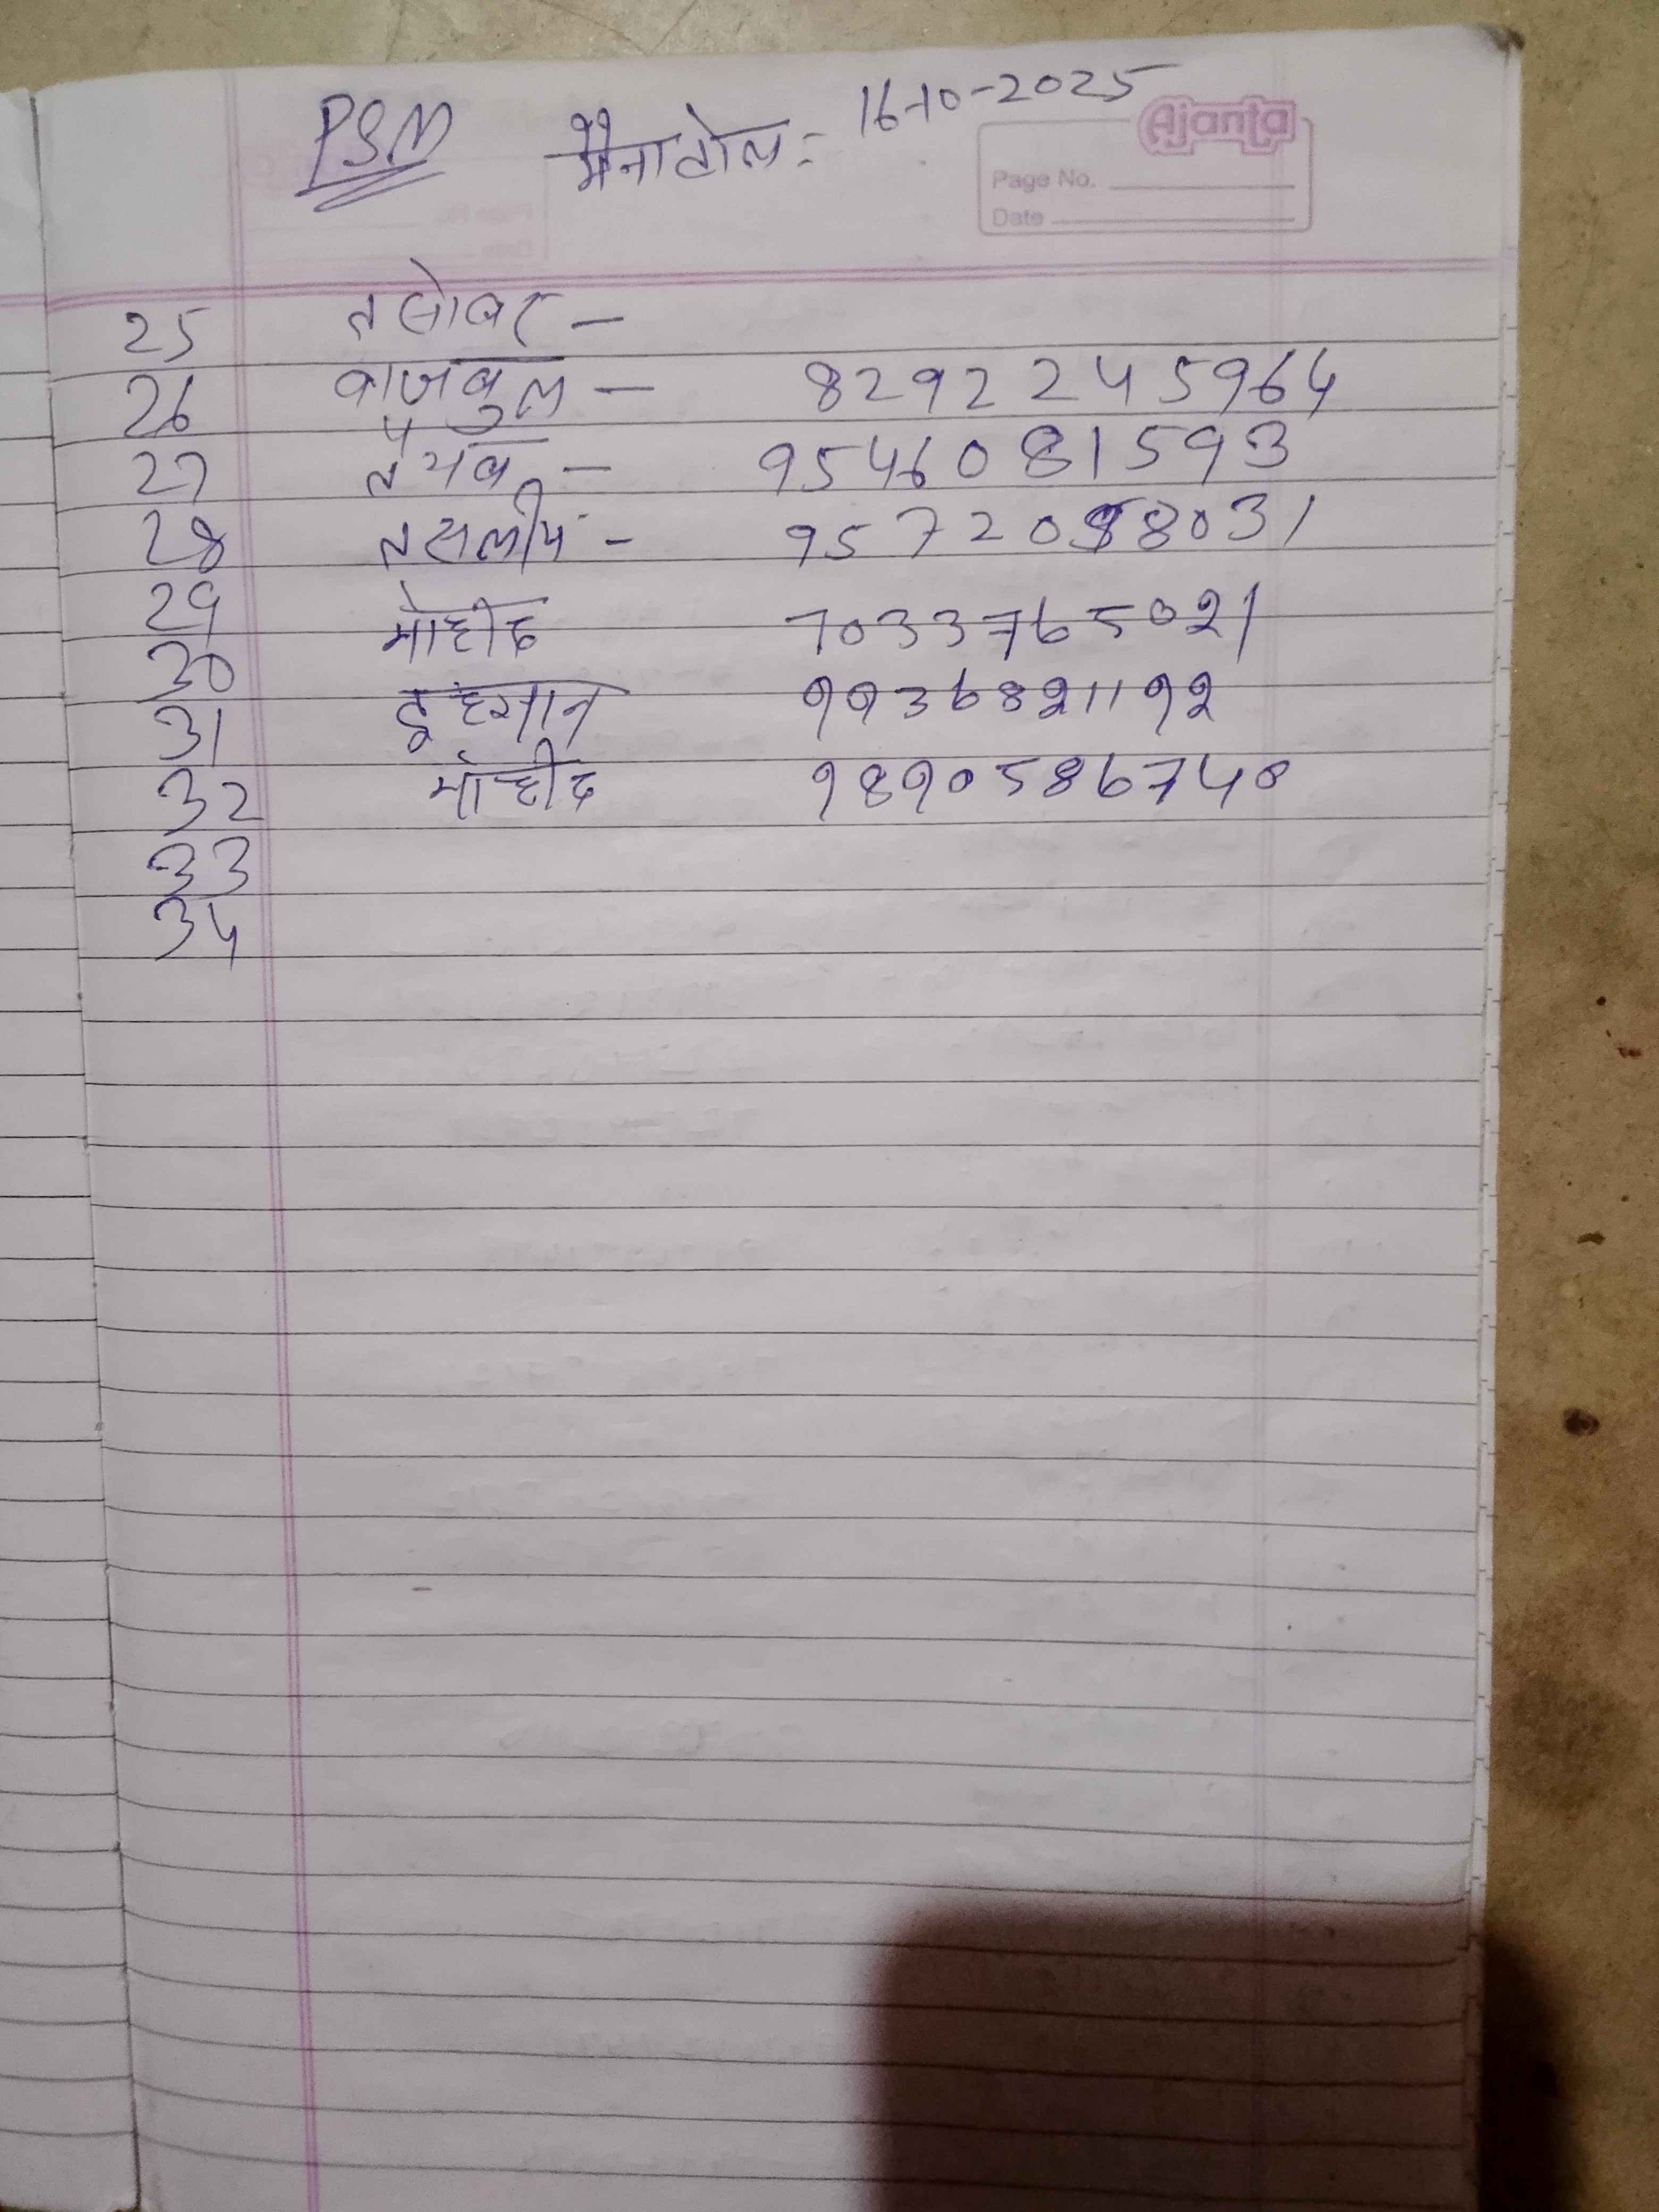 PSM मैनाटोल:- 16-10-2025
Ajanta
Page No.
Date
25 तसोवर —
26 वाजबुल — 8292245964
27 तैयब — 9546081593
28 तसलीम - 9572088031
29 मोहीद 7033765021
30 इहसान 9936821192
31 मोहीद 9890586740
32
33
34